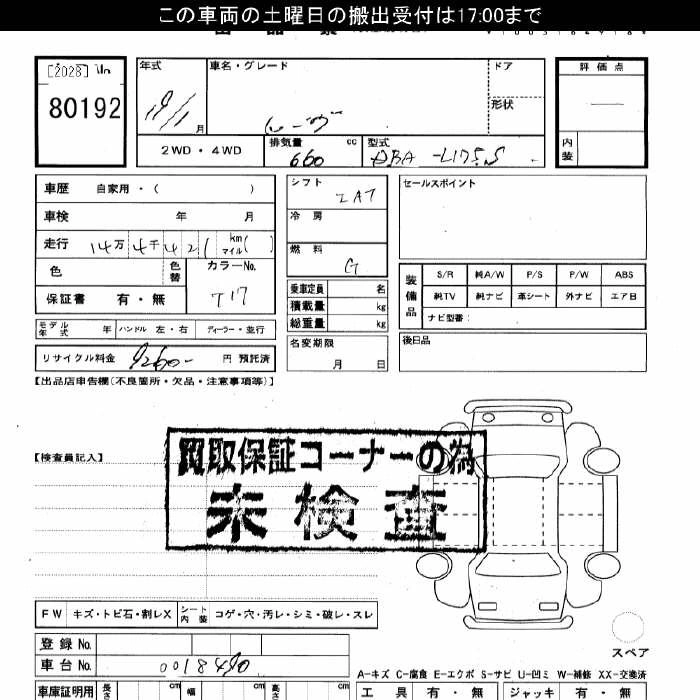 この車両の土曜日の搬出受付は17:00まで
[2028]
80192
年式
月
車名・グレード
ドア
形状
評価点
内装
2WD・4WD
排気量 660 cc
型式 DBA-L175S
車歴 自家用・( )
車検 年 月
走行 14万4千421 km マイル( )
色
色替
カラーNo.
T17
保証書 有・無
シフト
IAT
冷房
燃料
G
乗車定員 名
積載量 kg
総重量 kg
名変期限
月 日
セールスポイント
装備品
S/R 純A/W P/S P/W ABS
純TV 純ナビ 革シート 外ナビ エアB
ナビ型番:
後日品
モデル年式 年 ハンドル 左・右 ディーラー・並行
リサイクル料金 9260- 円 預託済
【出品店申告欄(不良箇所・欠品・注意事項等)】
【検査員記入】
買取保証コーナーの為
未検査
FW キズ・トビ石・割レX シート内装 コゲ・穴・汚レ・シミ・破レ・スレ
登録No.
車台No. 0018490
スペア
A-キズ C-腐食 E-エクボ S-サビ U-凹ミ W-補修 XX-交換済
車庫証明用 長さ cm 幅 cm 高さ cm
工具 有・無 ジャッキ 有・無